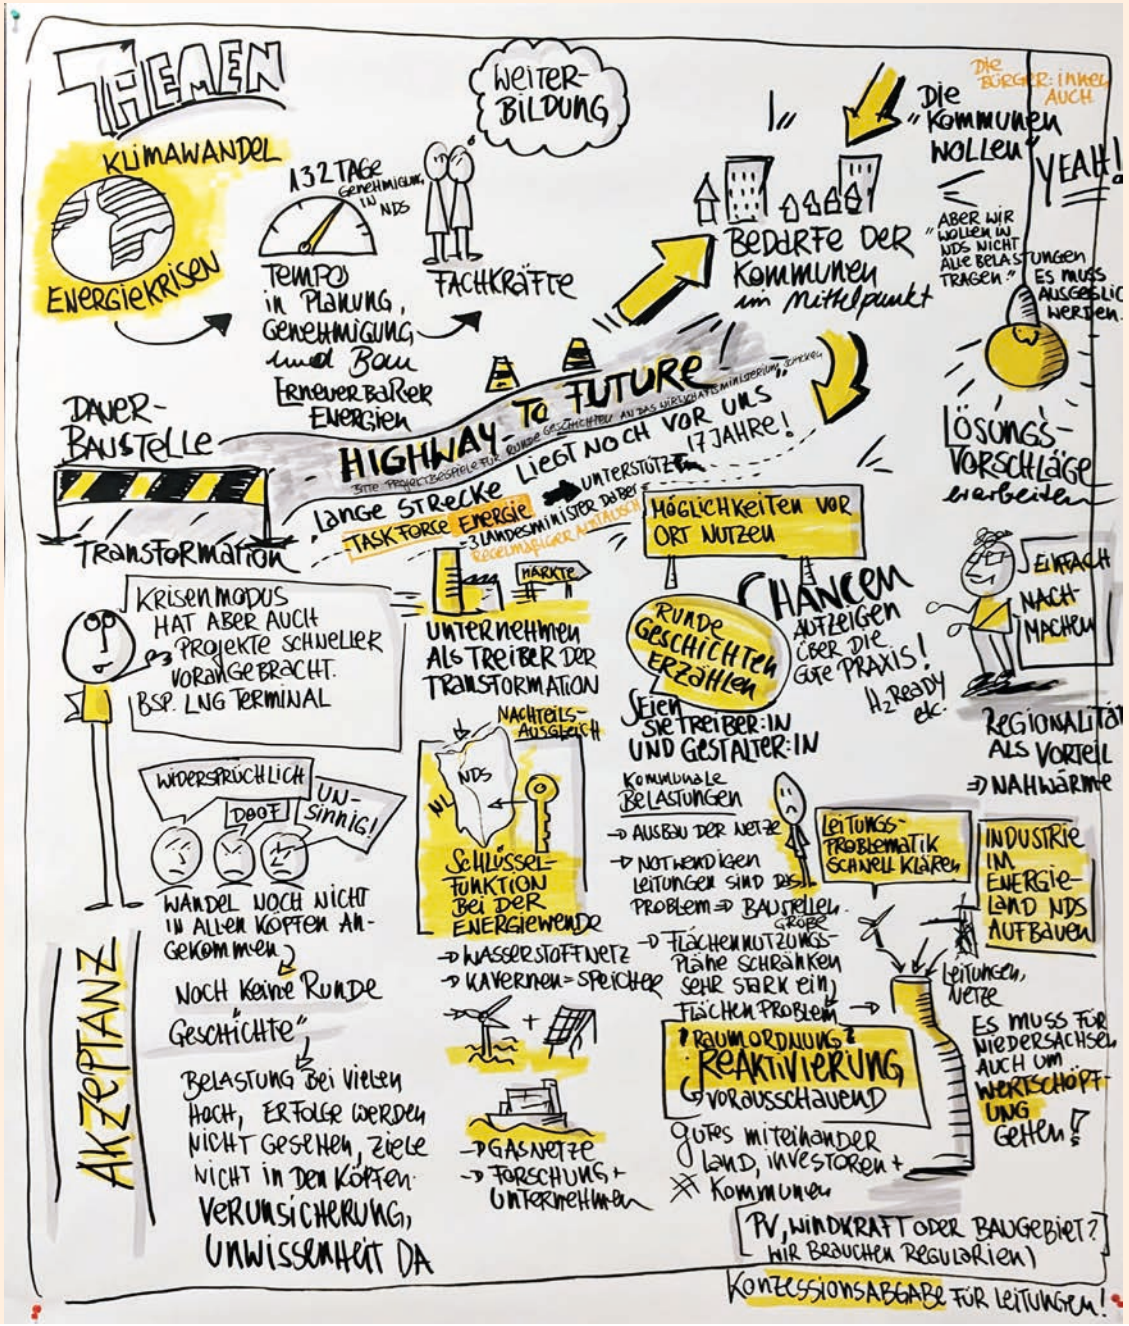 THEMEN
KLIMAWANDEL
ENERGIEKRISEN
132 TAGE
GENEHMIGUNG
IN NDS
TEMPO
IN PLANUNG,
GENEHMIGUNG
und Bau
ERNEUERBARER
ENERGIEN
WEITER-
BILDUNG
FACHKRÄFTE
BEDARFE DER
KOMMUNEN
im Mittelpunkt
DIE
BÜRGER:INNEN
AUCH
DIE
"KOMMUNEN
WOLLEN"
YEAH!
"ABER WIR
WOLLEN IN
NDS NICHT
ALLE BELASTUNGEN
TRAGEN."
ES MUSS
AUSGEGLIC
WERDEN.
LÖSUNGS-
VORSCHLÄGE
erarbeiten
DAUER-
BAUSTELLE
TRANSFORMATION
HIGHWAY TO FUTURE
BITTE PROJEKTBEISPIELE FÜR RUNDE GESCHICHTEN AN DAS WIRTSCHAFTSMINISTERIUM SCHICKEN
LANGE STRECKE LIEGT NOCH VOR UNS
17 JAHRE!
TASK FORCE ENERGIE
UNTERSTÜTZEN
=3 LANDESMINISTER DABEI
REGELMÄßIGER AUSTAUSCH
MÖGLICHKEITEN VOR
ORT NUTZEN
KRISENMODUS
HAT ABER AUCH
PROJEKTE SCHNELLER
VORANGEBRACHT.
BSP. LNG TERMINAL
MÄRKTE
UNTERNEHMEN
ALS TREIBER DER
TRANSFORMATION
RUNDE
GESCHICHTEN
ERZÄHLEN
CHANCEN
AUFZEIGEN
ÜBER DIE
GUTE PRAXIS!
H2READY
etc.
SEIEN
SIE TREIBER:IN
UND GESTALTER:IN
EINFACH
NACH-
MACHEN
REGIONALITÄT
ALS VORTEIL
⇒ NAHWÄRME
WIDERSPRÜCHLICH
DOOF
UN-
SINNIG!
WANDEL NOCH NICHT
IN ALLEN KÖPFEN AN-
GEKOMMEN
NOCH KEINE RUNDE
GESCHICHTE"
BELASTUNG BEI VIELEN
HOCH, ERFOLGE WERDEN
NICHT GESEHEN, ZIELE
NICHT IN DEN KÖPFEN.
VERUNSICHERUNG,
UNWISSENHEIT DA
AKZEPTANZ
NACHTEILS-
AUSGLEICH
NDS
NL
SCHLÜSSEL-
FUNKTION
BEI DER
ENERGIEWENDE
→ WASSERSTOFFNETZ
→ KAVERNEN=SPEICHER
+
→ GASNETZE
→ FORSCHUNG +
UNTERNEHMEN
KOMMUNALE
BELASTUNGEN
→ AUSBAU DER NETZE
→ NOTWENDIGEN
LEITUNGEN SIND DAS
PROBLEM ⇒ BAUSTELLEN.
GRÖßE
→ FLÄCHENNUTZUNGS-
PLÄNE SCHRÄNKEN
SEHR STARK EIN,
FLÄCHENPROBLEM
LEITUNGS-
PROBLEMATIK
SCHNELL KLÄREN
INDUSTRIE
IM
ENERGIE-
LAND NDS
AUFBAUEN
LEITUNGEN,
NETZE
ES MUSS FÜR
NIEDERSACHSEN
AUCH UM
WERTSCHÖPF-
UNG
GEHEN!
RAUMORDNUNG
REAKTIVIERUNG
VORAUSSCHAUEND
GUTES MITEINANDER
LAND, INVESTOREN +
KOMMUNEN
PV, WINDKRAFT ODER BAUGEBIET?
WIR BRAUCHEN REGULARIEN)
KONZESSIONSABGABE FÜR LEITUNGEN!